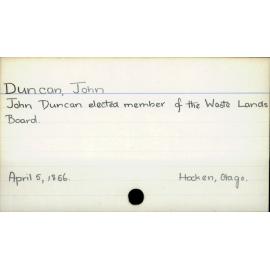 Duncan, John
John Duncan elected member of the Waste Lands
Board.
April 5, 1866.
Hocken, Otago.